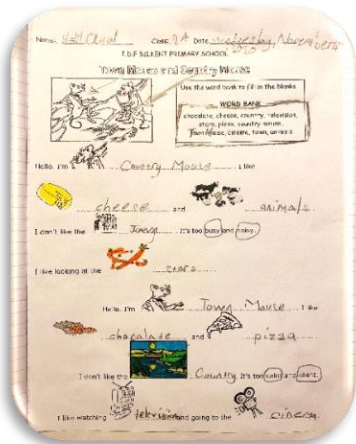 Name: Class: 2A Date: Wednesday, November
T.D.F BILKENT PRIMARY SCHOOL
Town Mouse and Country Mouse
Use the word bank to fill in the blanks
WORD BANK
chocolate, cheese, country, television,
stars, pizza, country mouse,
Town Mouse, cinema, town, animals
Hello. I'm Country Mouse. I like
cheese and animals.
I don't like the Town. It's too busy and noisy.
I like looking at the stars
Hello. I'm Town Mouse. I like
chocolate and pizza
I don't like the Country It's too calm and silent.
I like watching television and going to the cinema.